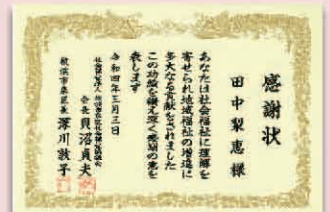 感謝状
田中梨恵様
あなたは社会福祉に理解を
寄せられ地域福祉の増進に
多大なる貢献をされました
この功績を讃え深く感謝の意を
表します
令和四年三月三日
社会福祉法人
会長 貝沼貞夫
横浜市泉区長 深川敦子